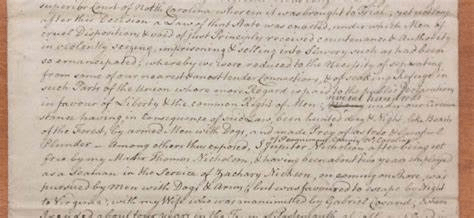 superior Court of North Carolina wherein it was brought to Trial, yet not long
after this Decision a Law of that State was enacted, under which Men of
cruel Disposition, & void of just Principle, received countenance & Authority
in violently seizing, imprisoning & selling into Slavery such as had been
so emancipated; whereby we were reduced to the Necessity of separating
from some of our nearest & most tender Connections, & of seeking Refuge in
such Parts of the Union where more Regard is paid to the public Declaration
in favour of Liberty & the common Right of Man; several hundreds under our Circum
stances having in Consequence of said Law, been hunted day & Night, like Beasts
of the Forest, by armed Men with Dogs, and made Prey of as free & lawful
Plunder — Among others thus exposed, I Jupiter Nicholson, of Perquimans County No. Carolina after being set
free by my Master Thomas Nicholson, & having been about two years employed
as a Seaman in the Service of Zachary Nickson, on coming on shore, was
pursued by Men with Dogs & Arms; but was favoured to escape by Night to
Virginia, with my Wife who was manumitted by Gabriel Cosand, where
I resided about four years in the Town of Portsmouth